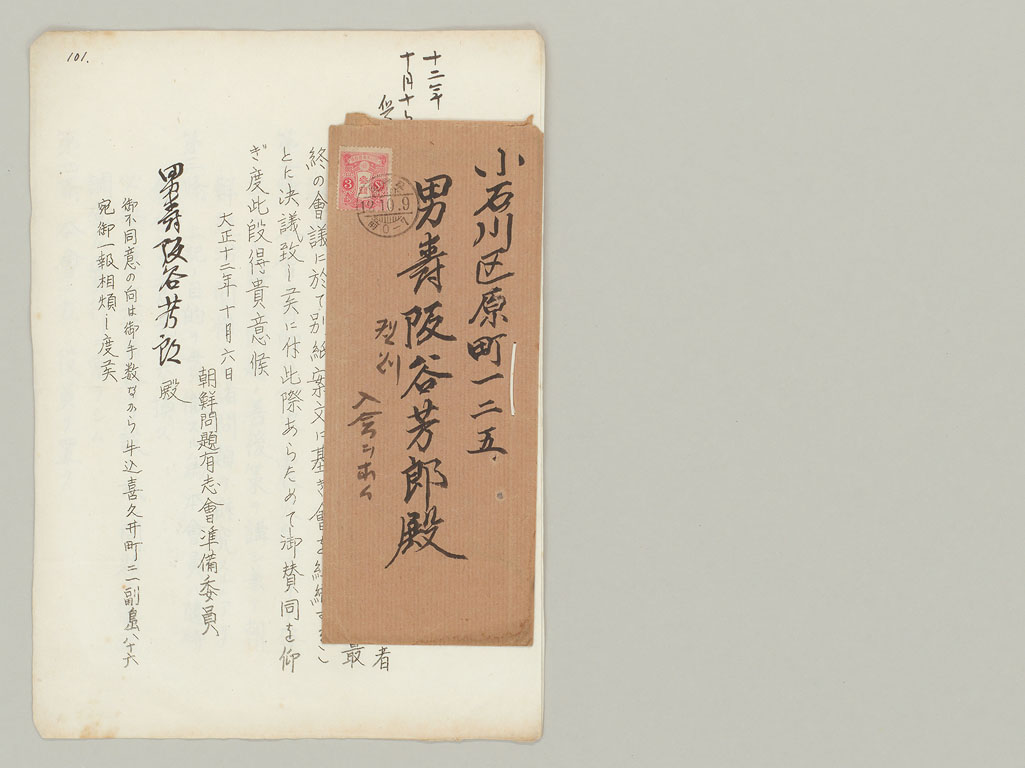 101.
十二年
十月十
小石川区原町一二五
男爵阪谷芳郎殿
3
10.9
入会ニ
者
最
終の會議に於て別紙案文に基き會を組織するこ
とに決議致し候に付此際あらためて御賛同を仰
ぎ度此段得貴意候
大正十二年十月六日
朝鮮問題有志會準備委員
男爵阪谷芳郎殿
御不同意の向は御手数ながら牛込喜久井町二一副島八十六
宛御一報相煩し度候